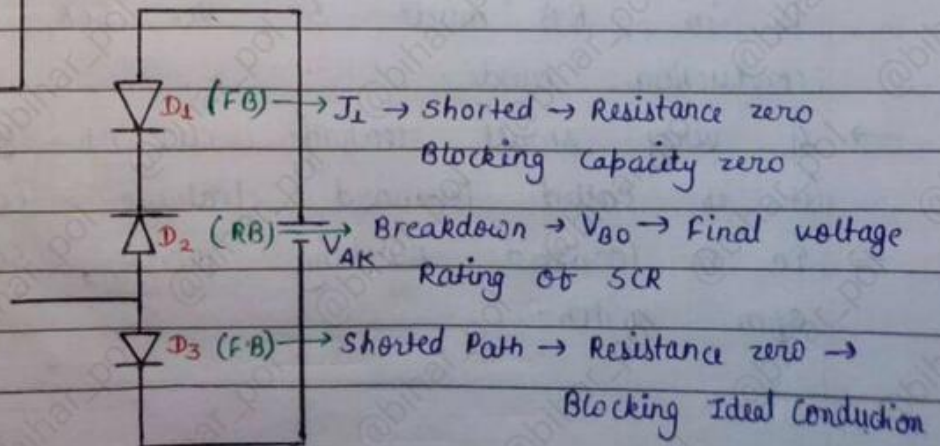 D₁ (FB) → J₁ → Shorted → Resistance zero
Blocking Capacity zero
D₂ (RB) → Breakdown → V_BO → Final voltage
V_AK
Rating of SCR
D₃ (F·B) → Shorted Path → Resistance zero →
Blocking Ideal Conduction